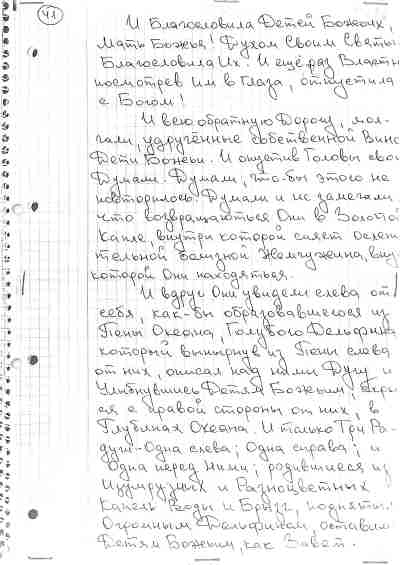 41
И Благословила Детей Божьих,
Мать Божья! Духом Своим Святы
Благословила Их. И ещё раз Властн
посмотрев Им в Глаза, отпустила
с Богом!
И всю обратную Дорогу, мол-
чали, удручённые собственной Вино
Дети Божьи. И опустив Головы сво
Думали. Думали, что-бы этого не
повторилось! Думали и не замечали
что возвращаються Они в Золотой
Капле, внутри которой сияет ослеп
тельной белизной Жемчужина, вну
которой Они находяться.
И вдруг Они увидели слева от
себя, как-бы образовавшегося из
Пены Океана, Голубого Дельфина
который вынырнув из Пены слева
от них, описал над ними Дугу и
Улыбнувшись Детям Божьим, скры
ся с правой стороны от них, в
Глубинах Океана. И только Три Ра-
дуги-Одна слева; Одна справа; и
Одна перед Ними; родившиеся из
Изумрудных и Разноцветных
Капель Воды и Брызг, поднятых
Огромным Дельфином, оставили
Детям Божьим, как Завет.